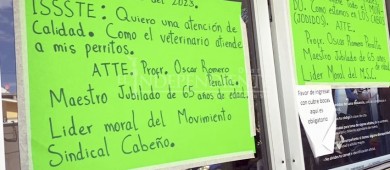 del 2023.
ISSSTE: Quiero una atención de
calidad. Como el veterinario atiende
a mis perritos.
ATTE. Profr. Oscar Romero
Peralta.
Maestro Jubilado de 65 años de edad.
Lider moral del Movimiento
Sindical Cabeño.
DO.
(JODIDOS)
ATTE.
Profr. Oscar Romero
Peralta.
Maestro Jubilado de 65
Lider Moral del M.S.C.
Favor de ingresar
con cubre bocas
aquí es
obligatorio